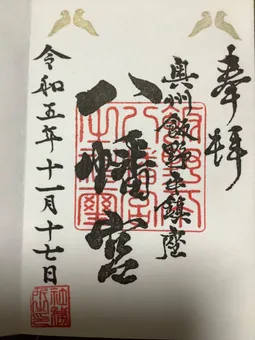 奉拝
奥州飯野平鎮座
八幡宮
令和五年十一月十七日